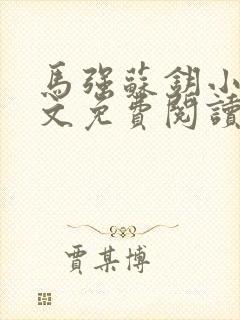 馬強蘇鈅小
文免費閱讀
賈某博